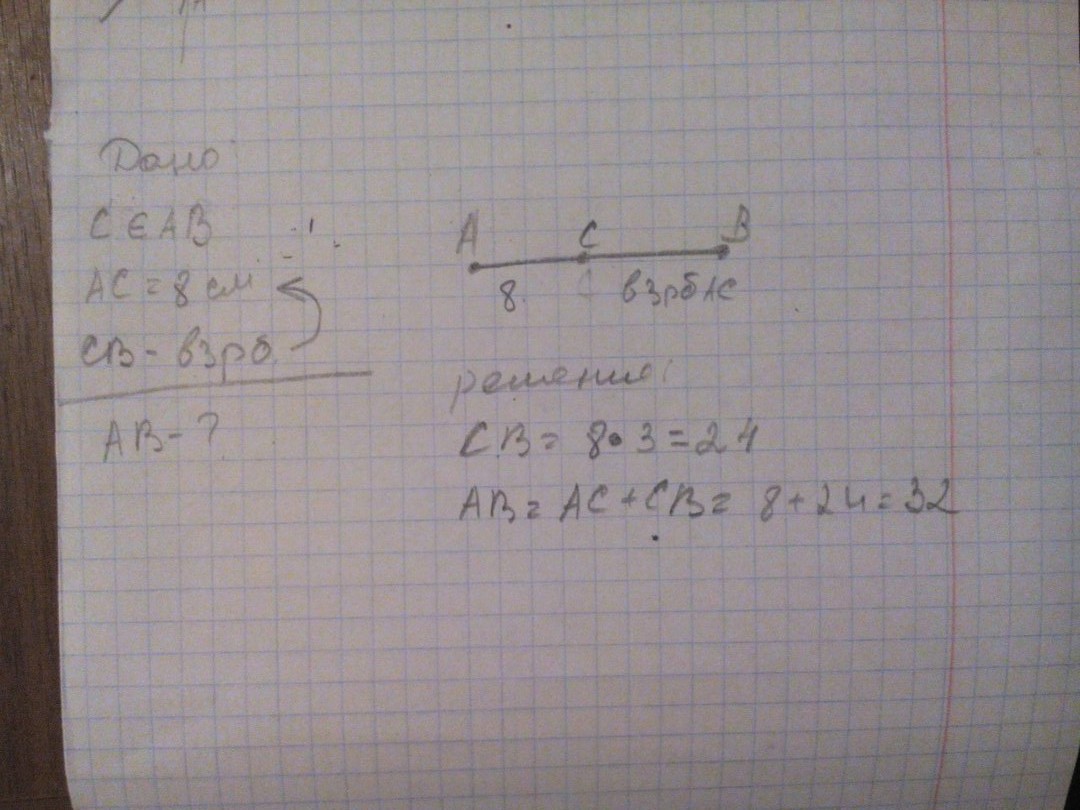 Дано
C ∈ AB
AC = 8 см
CB - в 3 р б.
AB - ?
A C B
8 в 3 р б AC
решение:
CB = 8 • 3 = 24
AB = AC + CB = 8 + 24 = 32